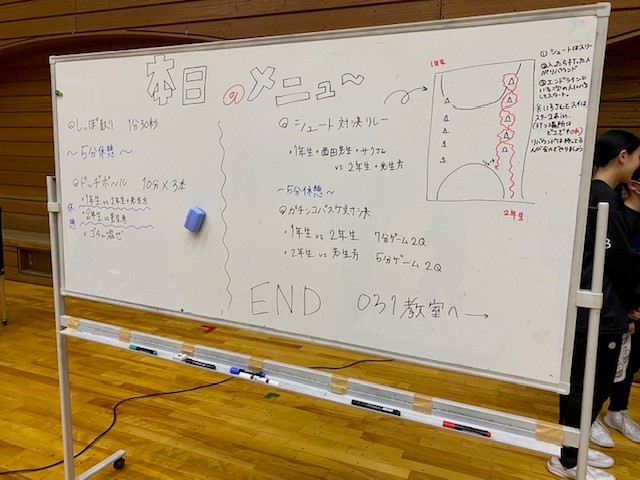 本日のメニュー
◎しっぽ取り 1分30秒
〜5分休憩〜
◎ドッヂボール 10分×3本
・1年生vs2年生+先生方
・2年生vs先生方
・ゴチャ混ぜ
休憩
◎シュート対決リレー
・1年生+西田先生+サクさん
vs 2年生+先生方
〜5分休憩〜
◎ガチンコバスケ対決
・1年生 vs 2年生 7分ゲーム2Q
・2年生 vs 先生方 5分ゲーム2Q
END 031教室へ→
1年生
2年生
①シュートはスリー
②入ったら打った人がリバウンド
③エンドラインに
スタート。